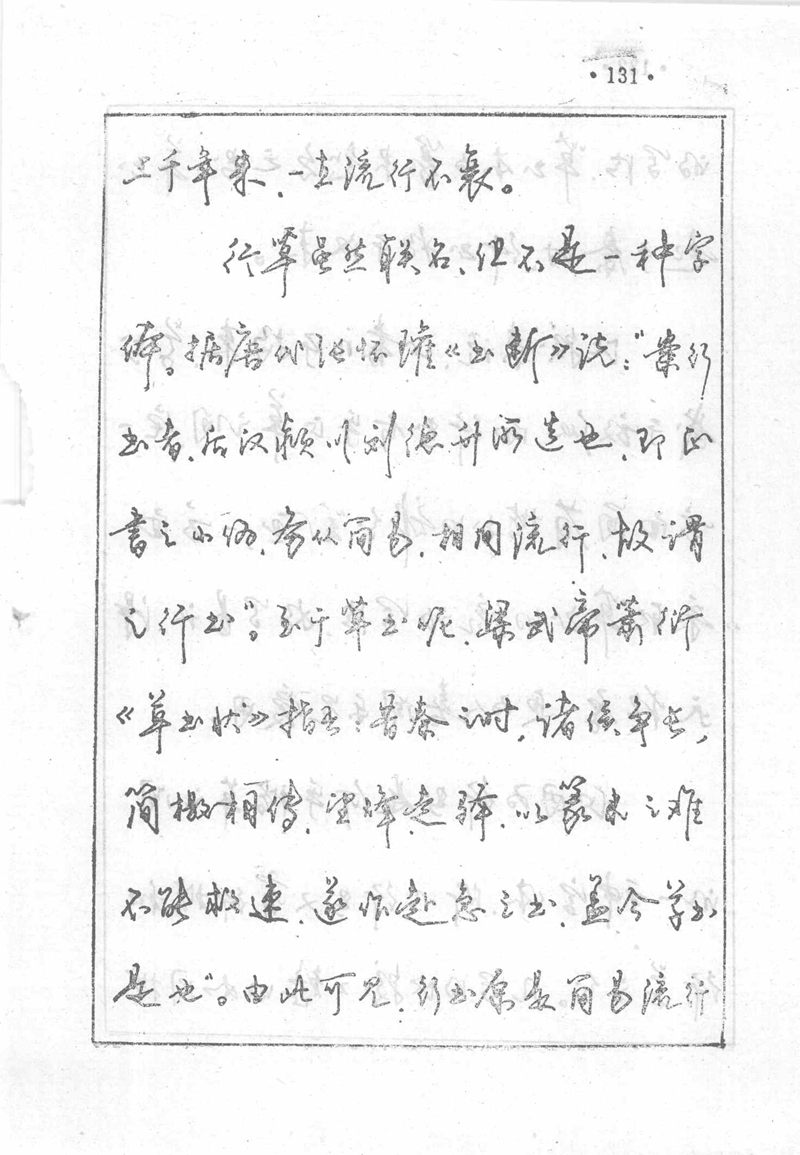 ·131·
上千年来，一直流行不衰。
行草虽然联名，但不是一种字
体。据唐代张怀瓘《书断》说：“案行
书者，后汉颍川刘德升所造也，即正
书之小伪，务从简易，相间流行，故谓
之行书”。至于草书呢，梁武帝萧衍
《草书状》指出：昔秦之时，诸侯争长，
简檄相传，望烽走驿，以篆隶之难
不能救速，遂作赴急之书，盖今草书
是也”。由此可见，行书原是简易流行